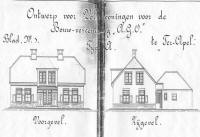 Ontwerp voor woningen voor de
Bouw-vereen. "A.G.O." te Ter-Apel.
Blad. No. 3. Type A.
Voorgevel. Zijgevel.